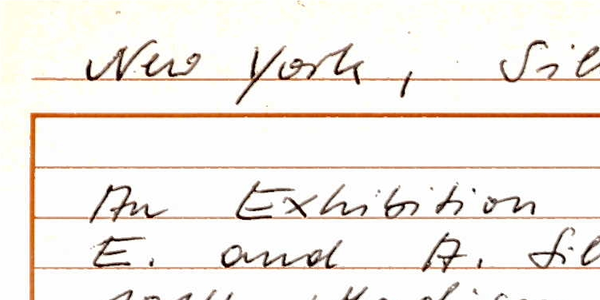 New York, Sil
An Exhibition
E. and A. Sil